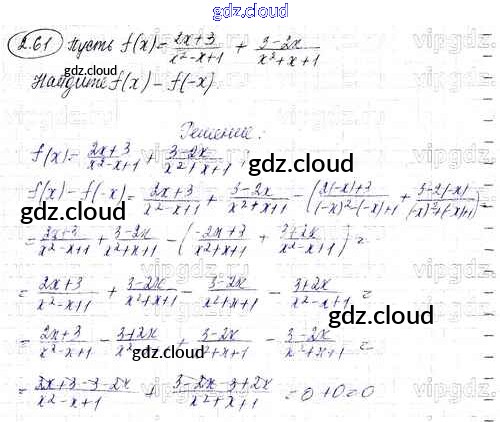 gdz.cloud
2.61 Пусть f(x) = \frac{2x+3}{x^2-x+1} + \frac{3-2x}{x^2+x+1}
Найдите f(x) - f(-x).
Решение:
f(x) = \frac{2x+3}{x^2-x+1} + \frac{3-2x}{x^2+x+1};
f(x) - f(-x) = \frac{2x+3}{x^2-x+1} + \frac{3-2x}{x^2+x+1} - (\frac{2(-x)+3}{(-x)^2-(-x)+1} + \frac{3-2(-x)}{(-x)^2+(-x)+1}) =
= \frac{2x+3}{x^2-x+1} + \frac{3-2x}{x^2+x+1} - (\frac{-2x+3}{x^2+x+1} + \frac{3+2x}{x^2-x+1}) =
= \frac{2x+3}{x^2-x+1} + \frac{3-2x}{x^2+x+1} - \frac{3-2x}{x^2+x+1} - \frac{3+2x}{x^2-x+1} =
= \frac{2x+3}{x^2-x+1} - \frac{3+2x}{x^2-x+1} + \frac{3-2x}{x^2+x+1} - \frac{3-2x}{x^2+x+1} =
= \frac{2x+3-3-2x}{x^2-x+1} + \frac{3-2x-3+2x}{x^2+x+1} = 0+0=0